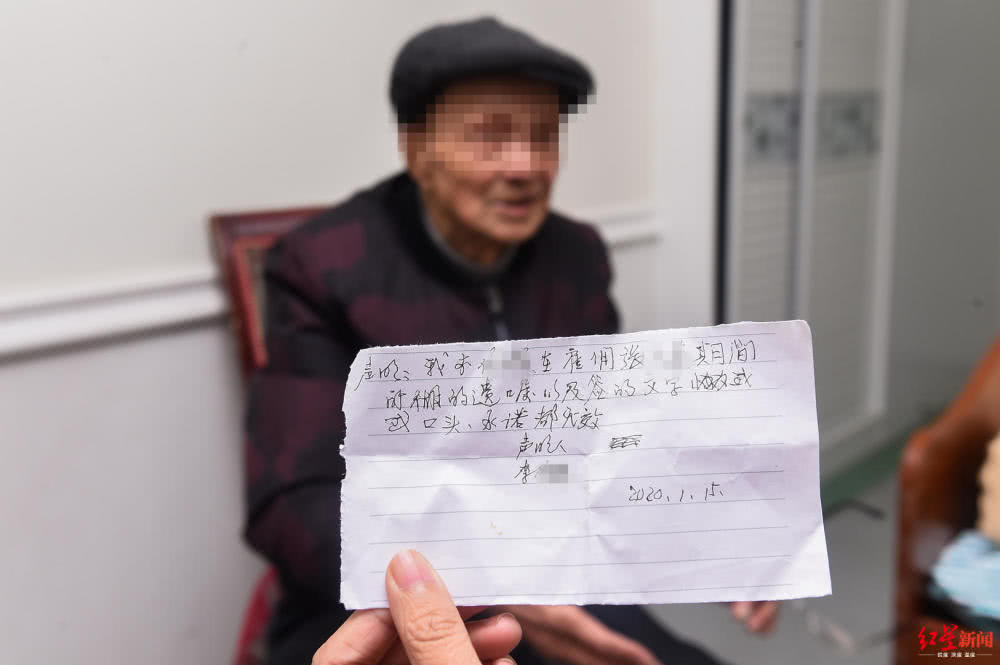 声明: 我李 在雇佣张 期间
所有的遗嘱以及签的文字
或口头、承诺都无效
声明人
李
2020.1.15.
红星新闻
锐度 深度 温度